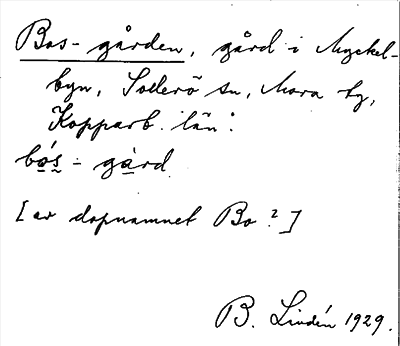 Bos-gården, gård i Myckel-
byn, Sollerö sn, Mora tg,
Kopparb. län.
bo̱´s̰ - gà̱rd
[av dopnamnet Bo?]
B. Lindén 1929.